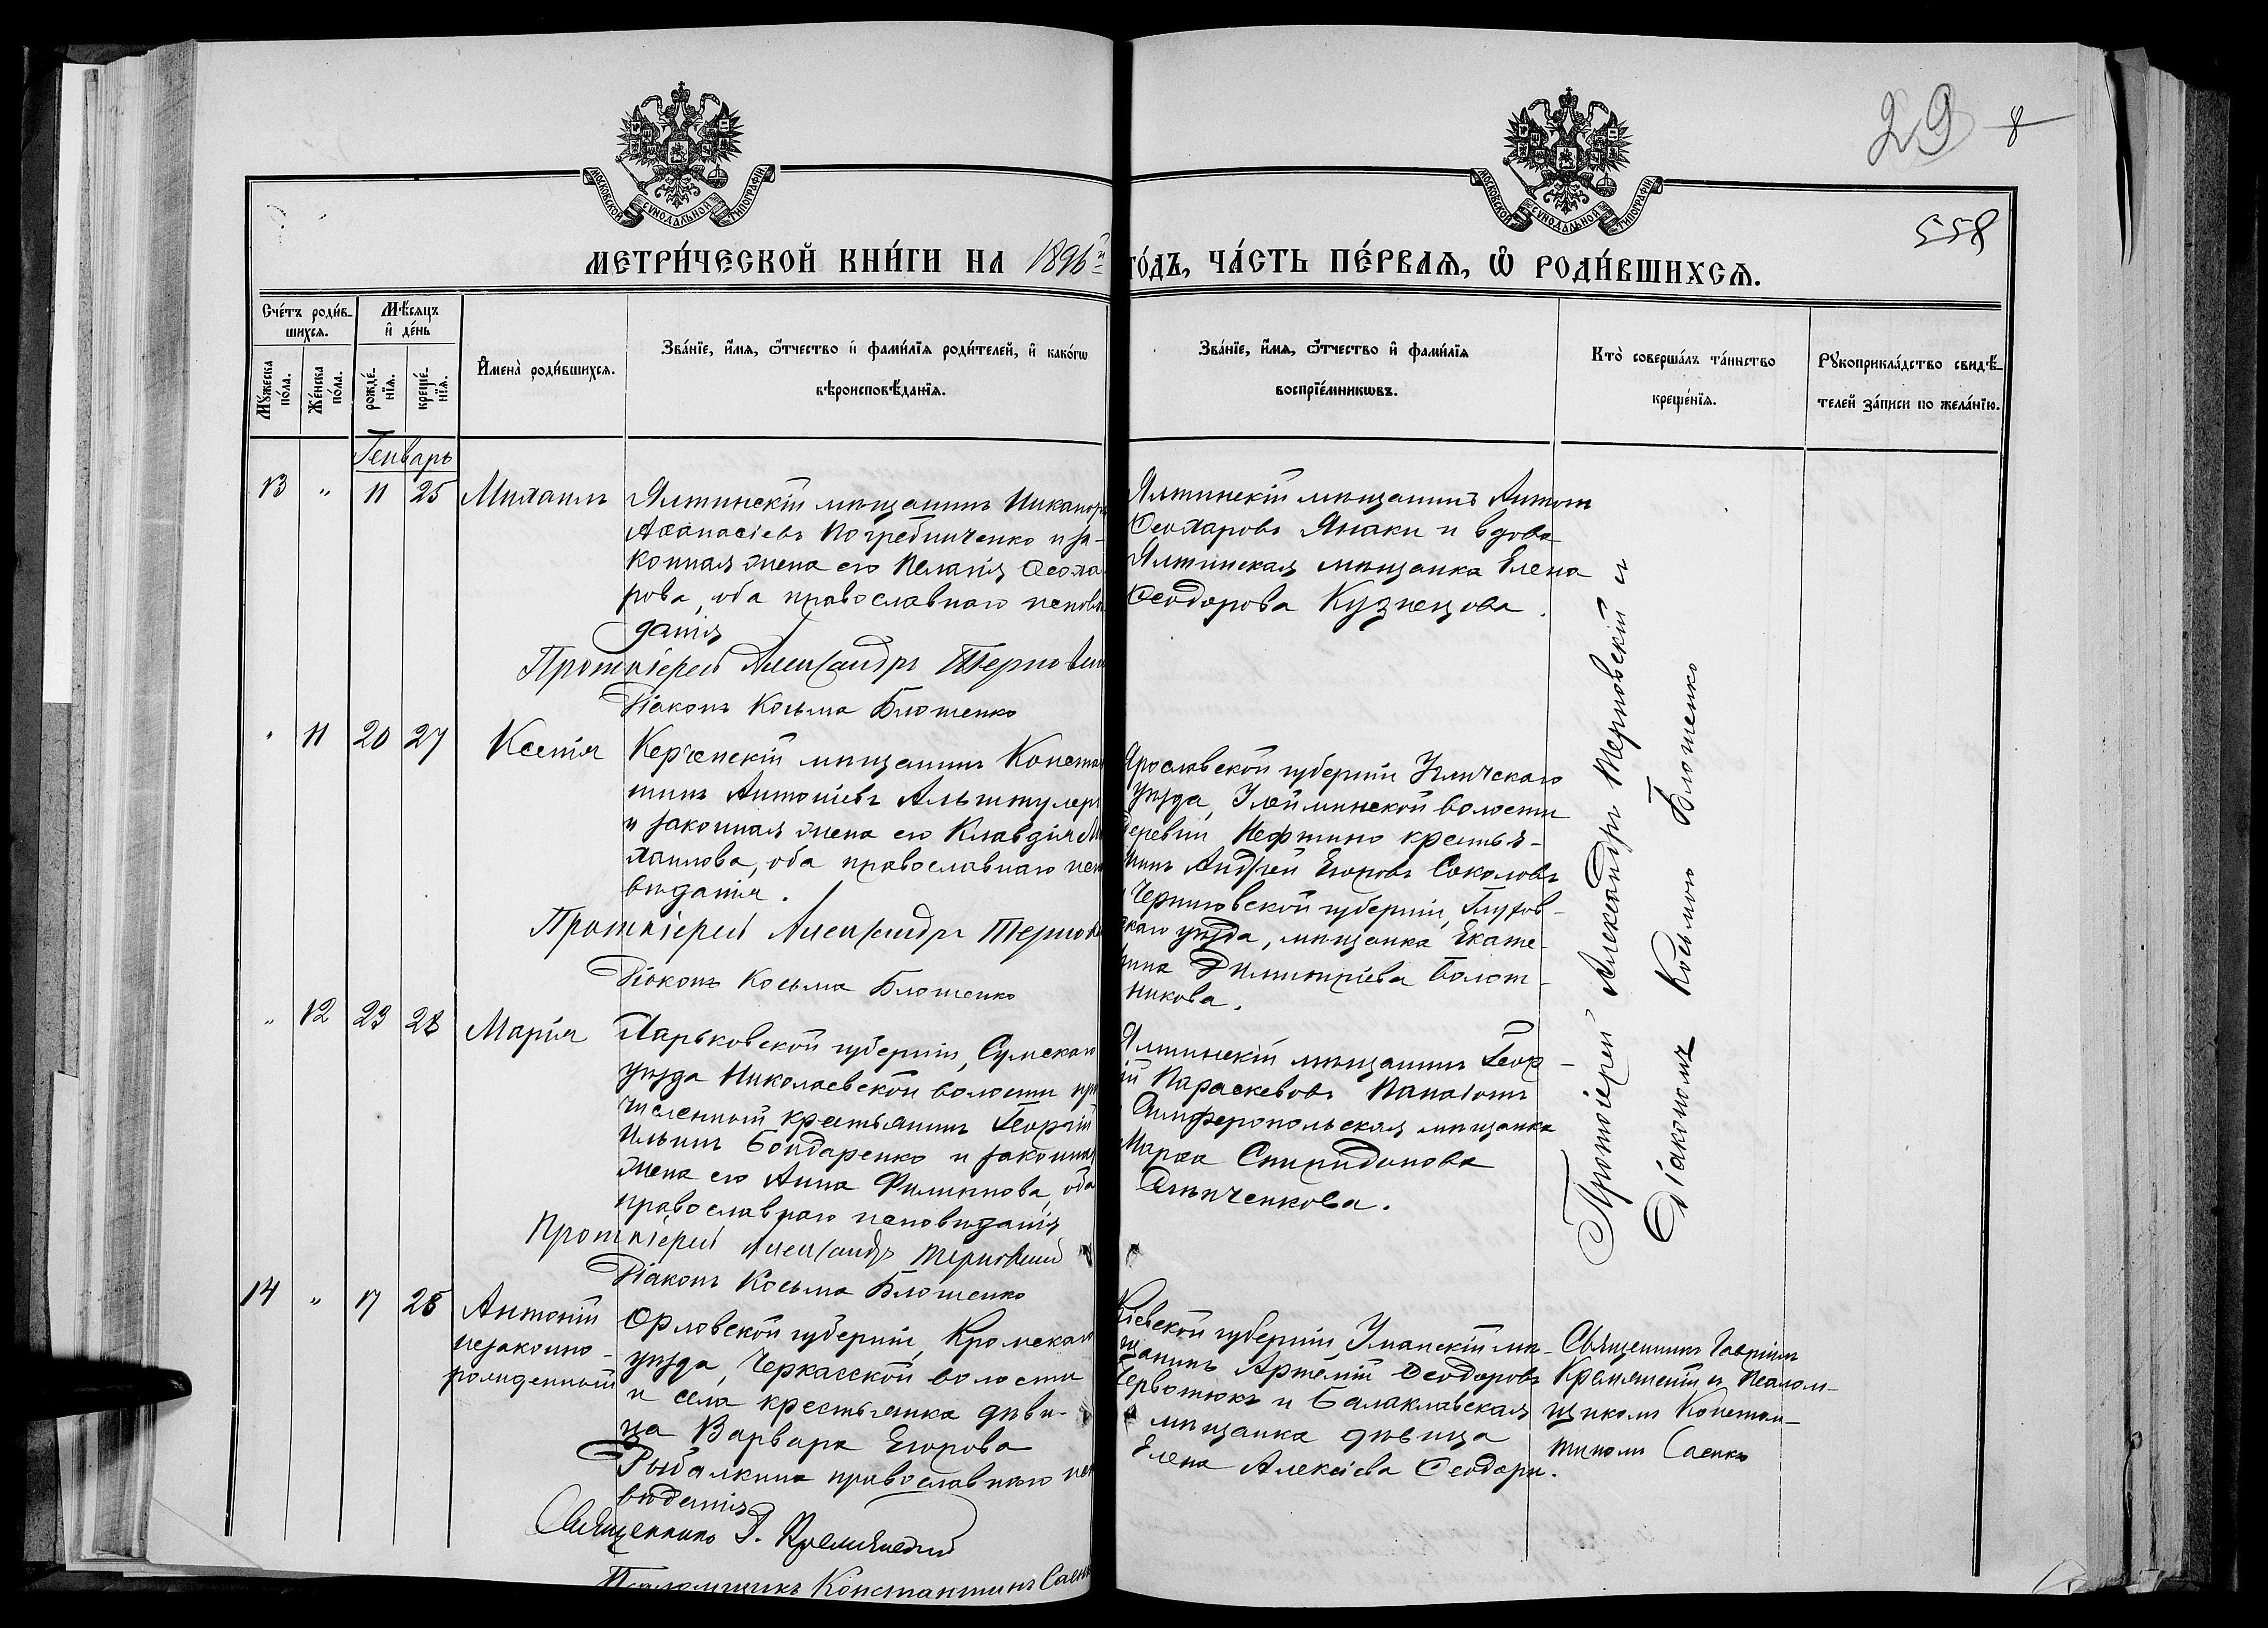 29 8
558
МОСКОВСКОЙ СѴНОДАЛЬНОЙ ТИПОГРАФІИ
МОСКОВСКОЙ СѴНОДАЛЬНОЙ ТИПОГРАФІИ
МЕТРИ́ЧЕСКОЙ КНИ́ГИ НА 1896й
ГО́ДЪ, ЧА́СТЬ ПЕ́РВАѦ, Ѡ҆ РОДИ́ВШИХСѦ.
Сче́тъ роди́в-
шихсѧ.
Мѣ́сѧцъ
и҆ де́нь
Мꙋ́жеска
по́ла.
Же́нска
по́ла.
рожде́-
нїѧ.
креще́-
нїѧ.
И҆мена̀ роди́вшихсѧ.
Зва́нїе, и҆́мѧ, ѻ҆́тчество и҆ фами́лїѧ роди́телей, и҆ како́гѡ
вѣроисповѣ́данїѧ.
Зва́нїе, и҆́мѧ, ѻ҆́тчество и҆ фами́лїѧ
воспрїе́мникѡвъ.
Кто̀ соверша́лъ та́инство
креще́нїѧ.
Рꙋкоприкла́дство свидѣ́-
телей за́писи по жела́нїю.
Генварь
13 " 11 25 Михаилъ
Ялтинскій мѣщанинъ Никаноръ
Аѳанасіевъ Погребниченко и за-
конная жена его Пелагія Ѳеоха-
рова, оба православнаго исповѣ-
данія
Протоіерей Александръ Терновскій
Діаконъ Косьма Блошенко
Ялтинскій мѣщанинъ Антонъ
Ѳеохаровъ Янаки и вдова
Ялтинская мѣщанка Елена
Ѳеодорова Кузнецова.
" 11 20 27 Ксенія
Керченскій мѣщанинъ Констан
тинъ Антоніевъ
и законная жена его Клавдія Ми
хаилова, оба православнаго испо
вѣданія.
Протоіерей Александръ Терновск
Діаконъ Косьма Блошенко
Ярославской губерніи Угличскаго
уѣзда, Улейминской волости
деревни Нефтино крестья-
нинъ Андрей Егоровъ Соколовъ
и Черниговской губерніи, Глухов-
скаго уѣзда, мѣщанка Екате-
рина Димитріева Болот-
никова.
" 12 23 28 Марія
Харьковской губерніи, Сумскаго
уѣзда Николаевской волости при
численный крестьянинъ Георгій
Ильинъ Бондаренко и законная
жена его Анна Филиппова, оба
православнаго исповѣданія
Протоіерей Александръ Терновскій
Діаконъ Косьма Блошенко
Ялтинскій мѣщанинъ Геор-
гій Параскевовъ
Симферопольская мѣщанка
Марѳа Спиридонова
Протоіерей Александръ Терновскій и
Діакономъ Косьмою Блошенко
14 " 17 28 Антоній
незаконно-
рожденный
Орловской губерніи, Кромскаго
уѣзда, Черкасской волости
и села крестьянка дѣви-
ца Варвара Егорова
Рыбалкина православнаго испо
вѣданія
Священникъ Г. Кремянскій
Псаломщикъ Константинъ Саенко
Кіевской губерніи, Уманскій мѣ-
щанинъ Артемій Ѳеодоровъ
Червотюкъ и Балаклавская
мѣщанка дѣвица
Елена Алексіева Ѳеодори.
Священникъ Гавріилъ
Кремянскій и псалом-
щикомъ Констан-
тиномъ Саенко